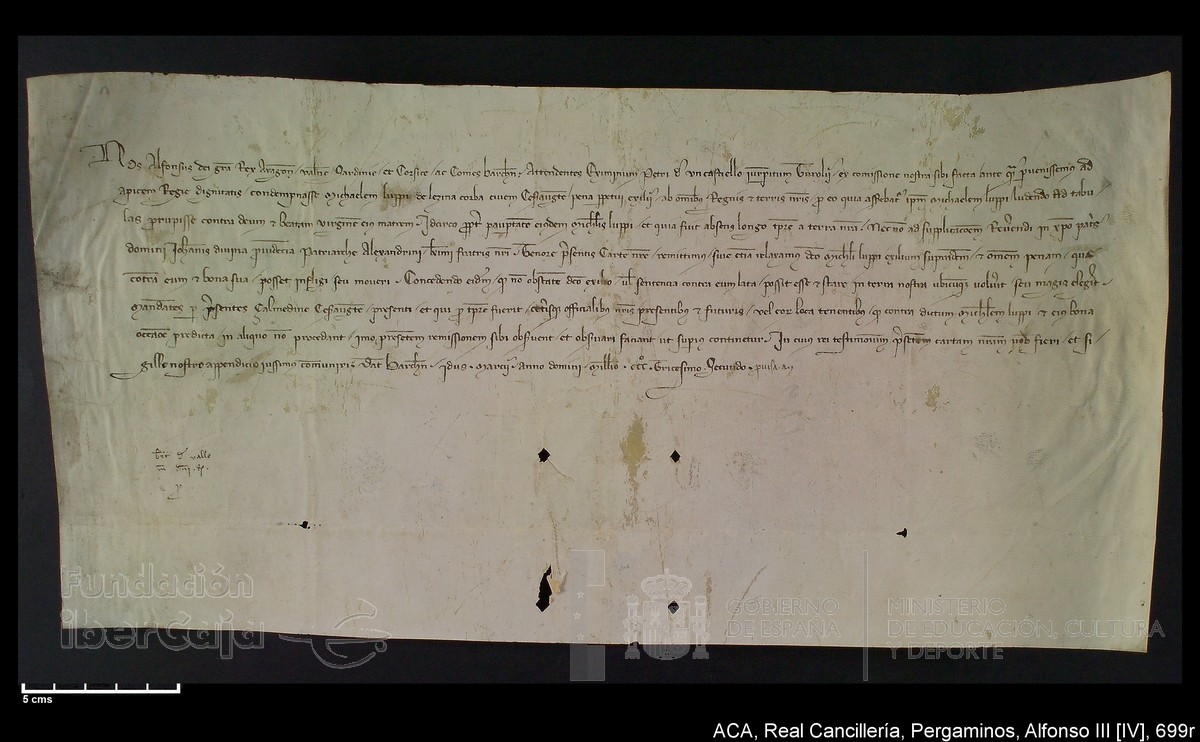 Nos Alfonsus dei gra Rex Aragon / valnc Sardinie et Corsice / ac Comes barchn. Attendentes Eximinum Petri de Uncastello iurpitum Turolii / ex comissione nostra sibi facta ante qr puenissemus ad
apicem Regie dignitatis condempnasse Michaelem luppi de lezina corba civem Cesaugte / pena ppetui exilii / ab omibus Regnis et terris nris / pro eo quia asserebat ipm Michaelem luppi ludendo Ad tabu
las prorupisse contra deum et beatam virginem eius matrem. Idcirco / propt paupertatem eiusdem Michlis luppi / et quia fuit absens longo tpre a terra nra / Nec no ad supplicacoem Reverendi in xpo patris
domini Johanis divina providencia Patriarche Alexandrini kmi fratris nri. Tenore psentis Carte nre / remittimus / sive etia relaxamus dco Michli luppi exilium supradcm / et omem penam / que
contra eum et bona sua / posset infligi seu moveri. Concedendo eidm / qd no obstante dco exilio / vel sentencia contra eum lata / possit esse et stare in terra nostra ubicumqz voluerit / seu magis elegerit.
Mandantes per presentes Calmedine Cesaugte / presenti / et qui pro tpre fuerit / ceterisqz officialibus nris presentibus et futuris / vel eor loca tenentibus / qd contra dictum Michlem luppi et eius bona
occasioe predicta in aliquo no procedant / imo / presentem remissionem sibi observent et observari faciant ut superius continetur. In cuius rei testimonium presentem cartam nram inde fieri et si
gillo nostro appendicio iussimus comuniri. Dat Barchn. idus Marcii anno domini millio. CCCo. Tricesimo. Secundo.
de valle
ACA, Real Cancillería, Pergaminos, Alfonso III [IV], 699r
5 cms
Fundación
iberCaja
GOBIERNO
DE ESPAÑA
MINISTERIO
DE EDUCACIÓN, CULTURA
Y DEPORTE